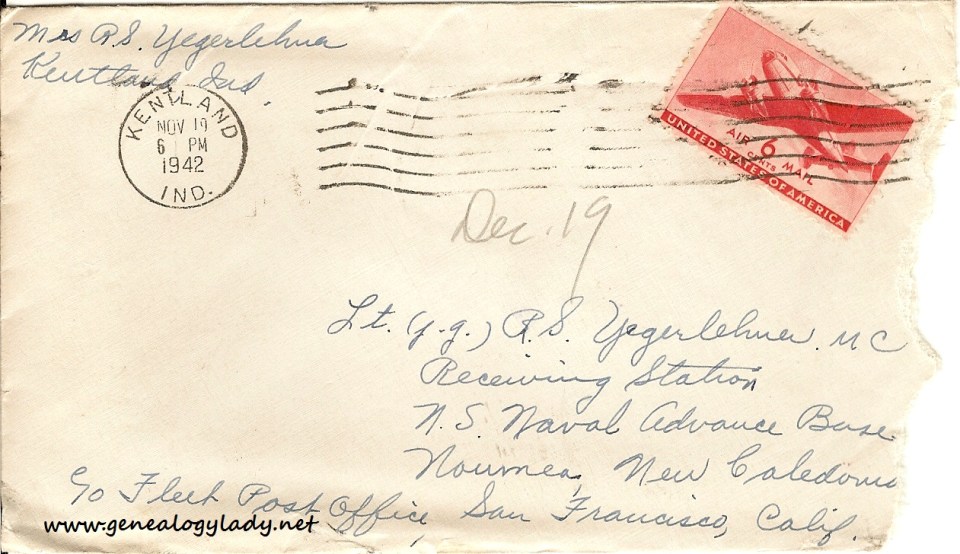 Mrs R.S. Yegerlehner
Kentland Ind.
KENTLAND
NOV 19
6 PM
1942
IND.
AIR 6 MAIL
CENTS
UNITED STATES OF AMERICA
Dec. 19
Lt. (j.g.) R.S. Yegerlehner. M C
Receiving Station
U.S. Naval Advance Base
Noumea, New Caledonia
c/o Fleet Post Office, San Francisco, Calif.
www.genealogylady.net